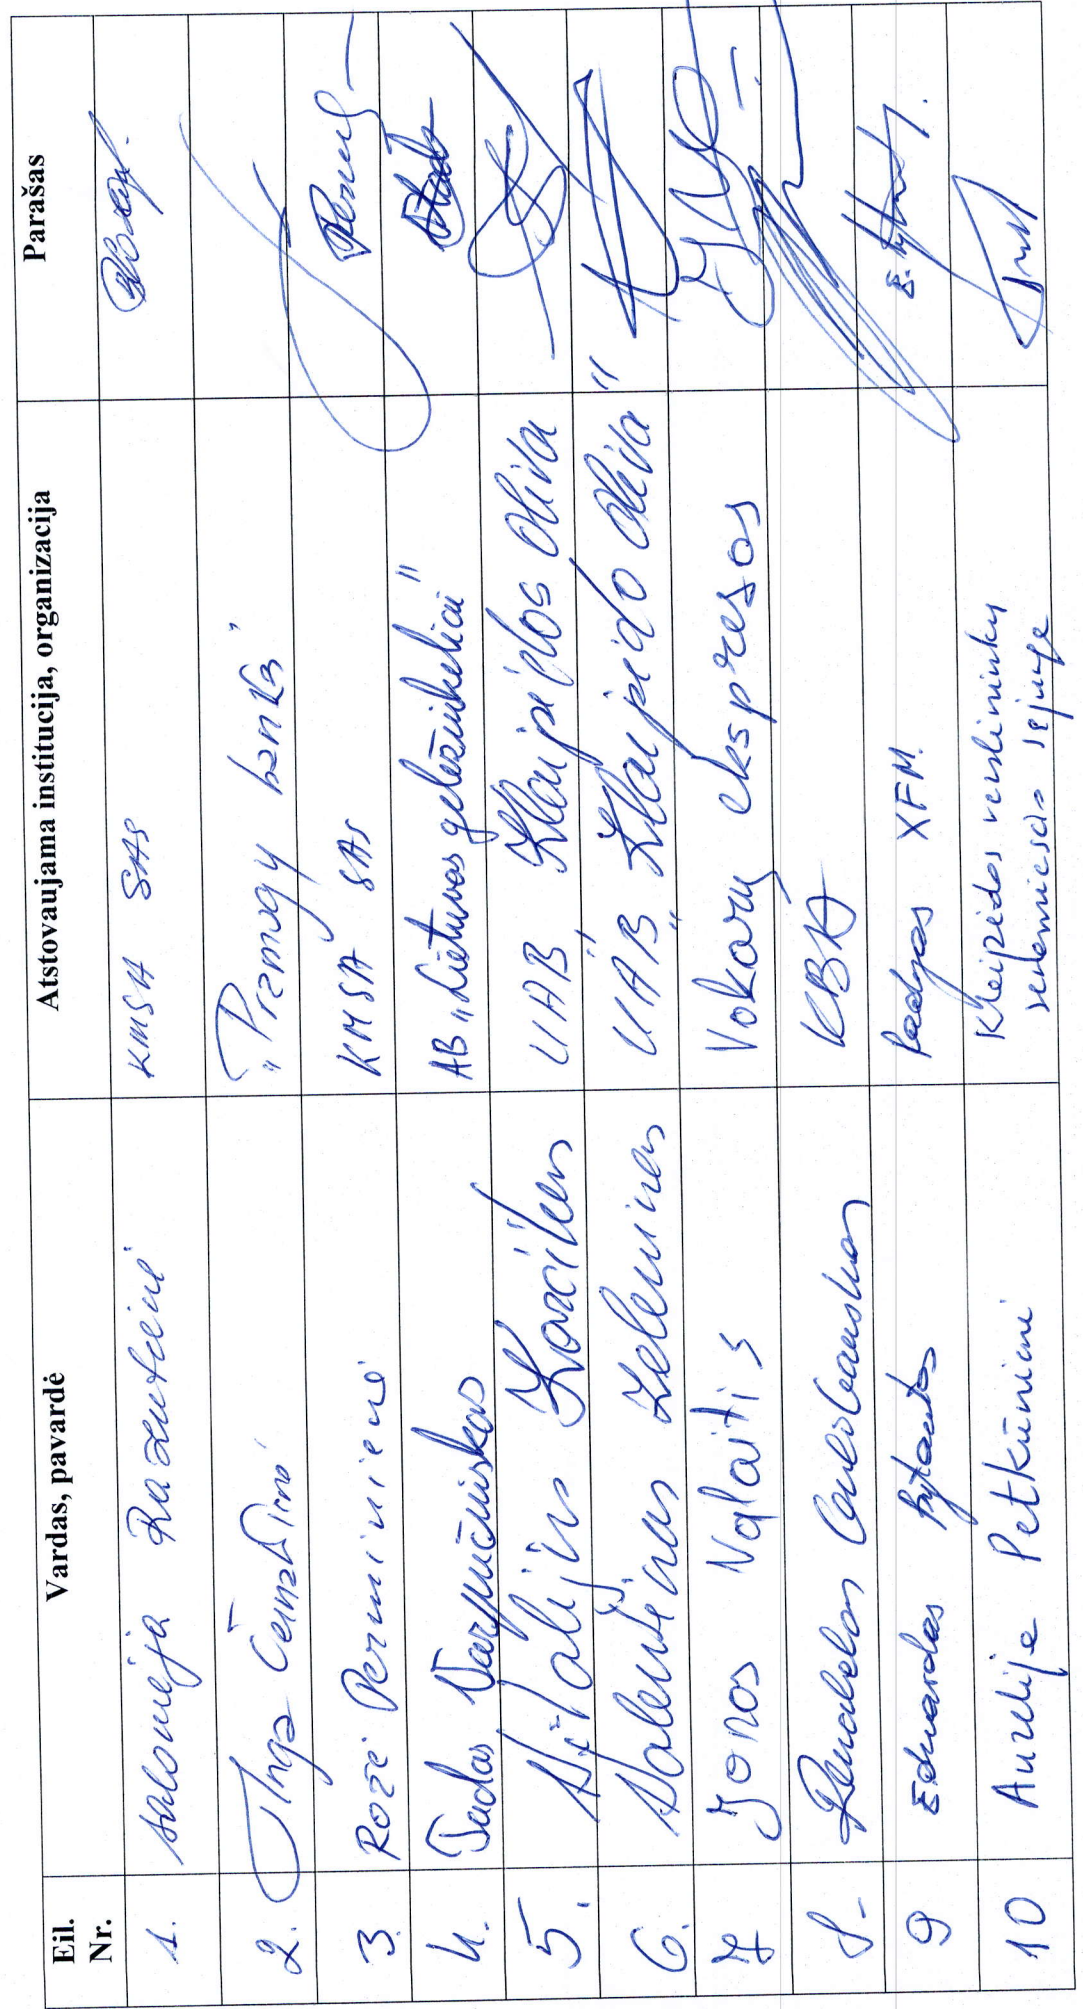 Eil. Nr. Vardas, pavardė Atstovaujama institucija, organizacija Parašas
1. Salomėja Razutienė KMSA SAS
2. Inga "Pramogų banka"
3. Rožė Perminienė KMSA SAS
4. Tadas Varpučinskas AB "Lietuvos geležinkeliai"
5. Vitalijus UAB Klaipėdos Oliva
6. Valentinas Zeleninas UAB "Klaipėdo Oliva"
7 Jonas Valaitis Vakarų ekspresas
8- KBA
9 Eduardas XFM
10 Aurelija Petkūnienė Klaipėdos verslininkų
senamiesčio sąjunga